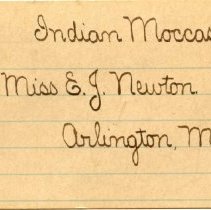 Indian Moccas
Miss E. J. Newton
Arlington, M